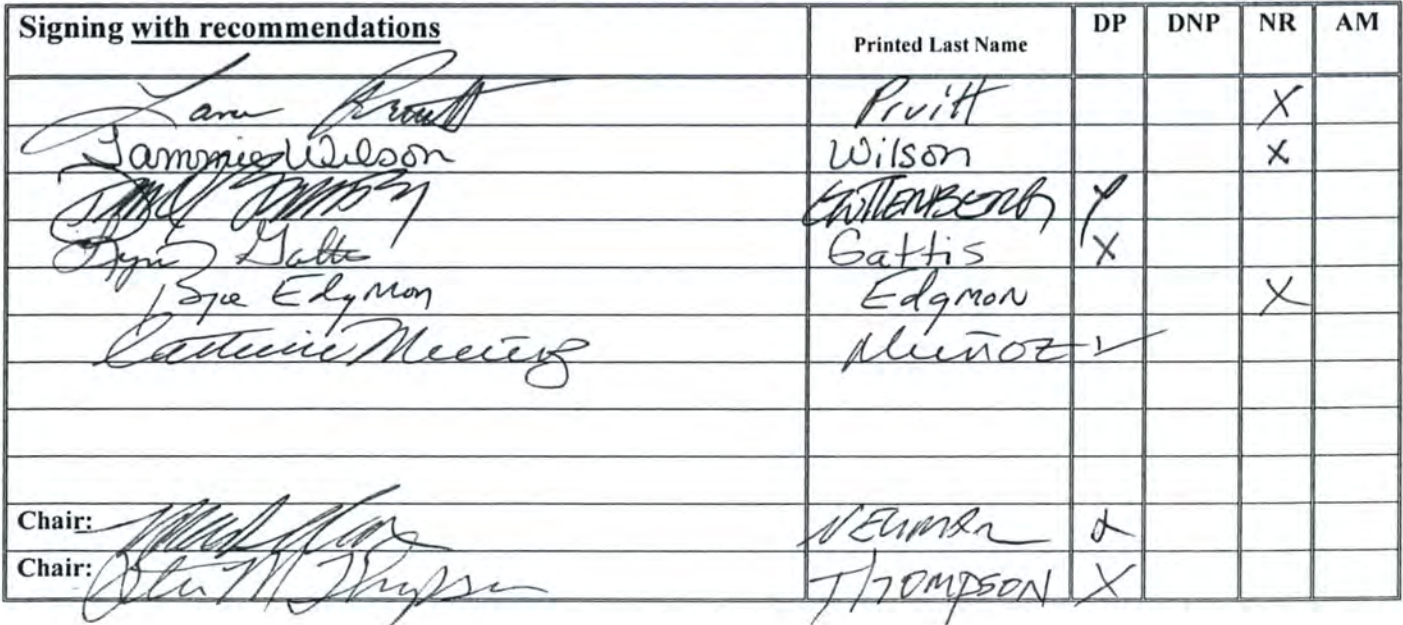 Signing with recommendations Printed Last Name DP DNP NR AM
Lance Pruitt Pruitt X
Tammie Wilson Wilson X
Guttenberg X
Lynn Gattis Gattis X
Bryce Edgmon Edgmon X
Cathy Muñoz Muñoz ✓
Chair: Mark Neuman NEUMAN X
Chair: Steve M Thompson THOMPSON X